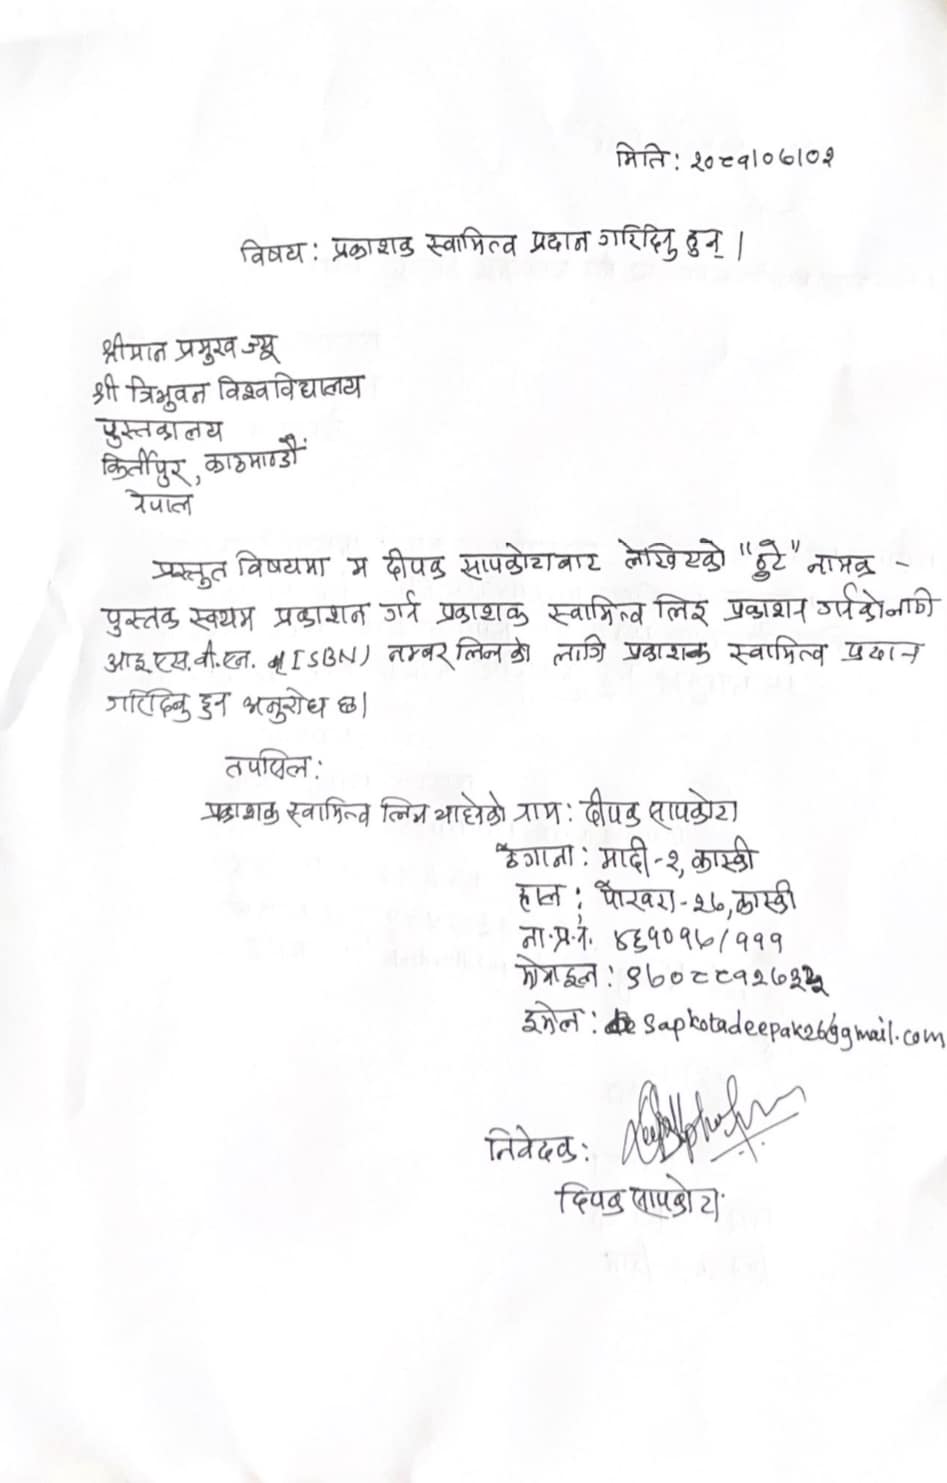 मिति : २०८१।०७।०२
विषय : प्रकाशक स्वामित्व प्रदान गरिदिनु हुन् ।
श्रीमान प्रमुख ज्यू
श्री त्रिभुवन विश्वविद्यालय
पुस्तकालय
किर्तीपुर, काठमाण्डौं
नेपाल
प्रस्तुत विषयमा म दीपक सापकोटाबाट लेखिएको "हुटे" नामक -
पुस्तक स्वयम प्रकाशन गर्न प्रकाशक स्वामित्व लिइ प्रकाशन गर्नकोलागी
आइ.एस.वी.एन. (ISBN) नम्बर लिनको लागि प्रकाशक स्वामित्व प्रदान
गरिदिनु हुन अनुरोध छ।
तपसिल :
प्रकाशक स्वामित्व लिन चाहेको नाम : दीपक सापकोटा
ठेगाना : मादी-२, कास्की
हाल : पोखरा-२७, कास्की
ना.प्र.नं. ४६१०१७/१११
मोबाइल :
इमेल : sapkotadeepak26@gmail.com
निवेदक :
दिपक सापकोटा